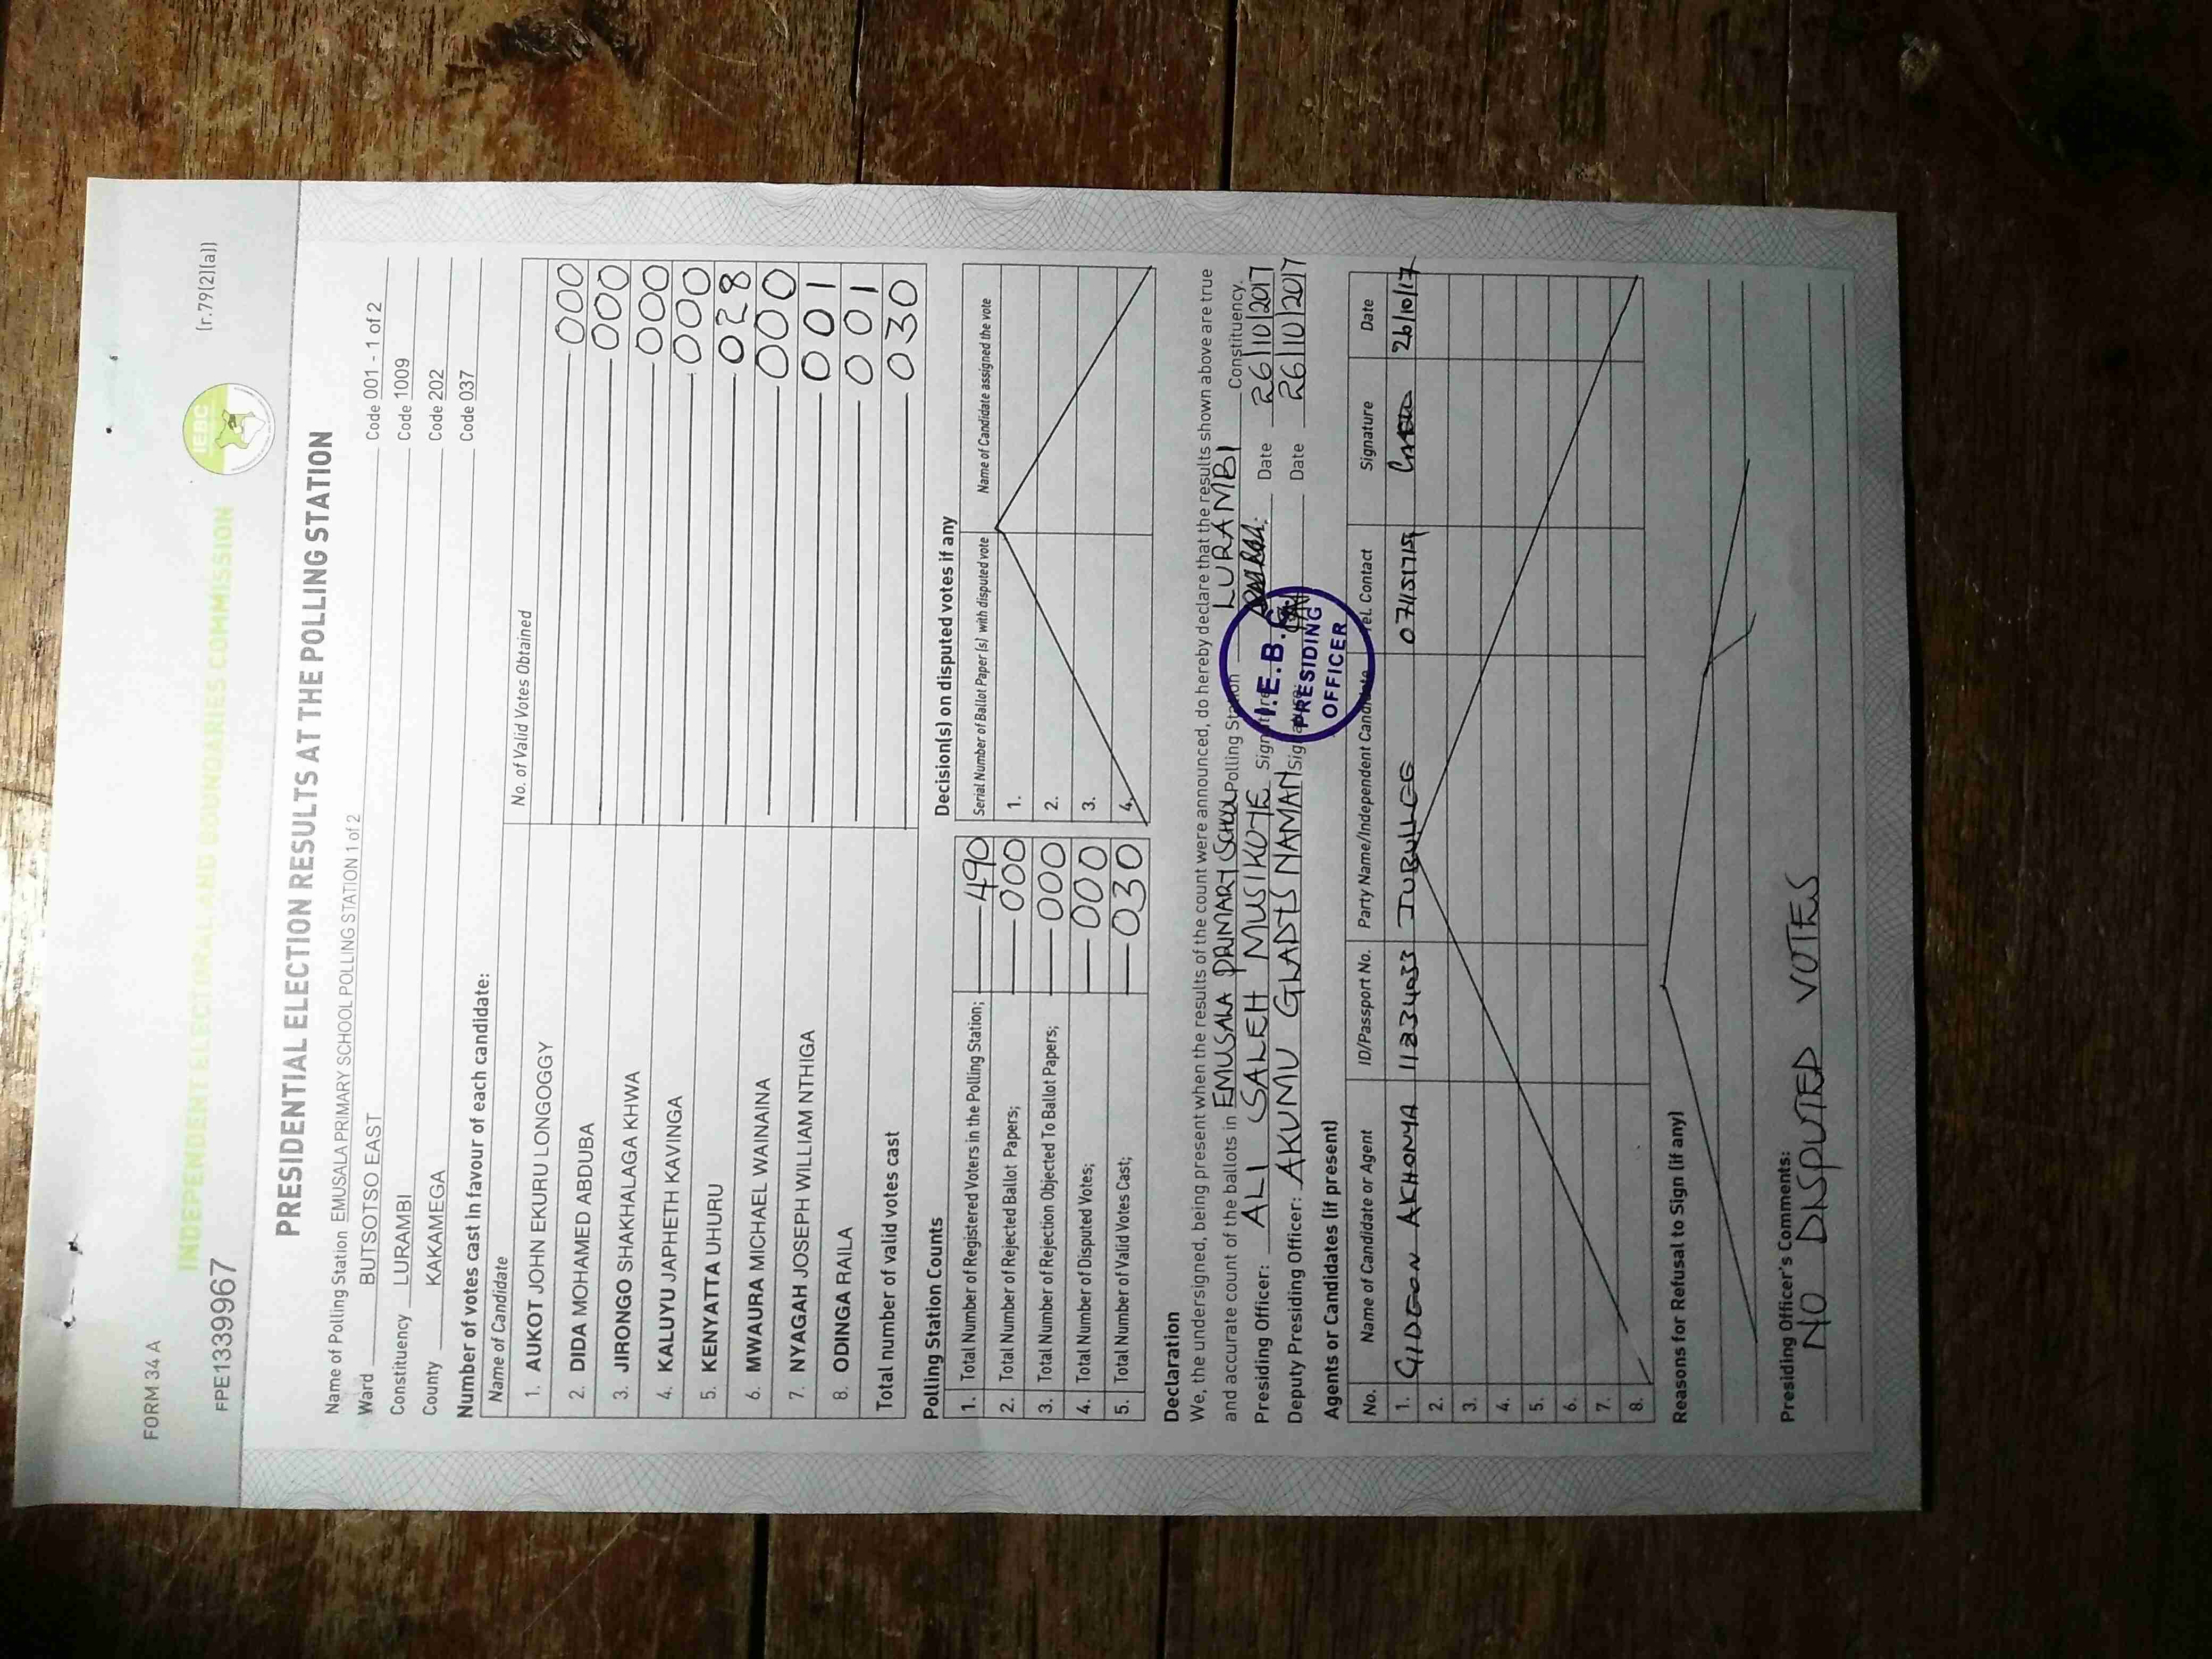 FORM 34 A
(r.79(2)(a))
IEBC
INDEPENDENT ELECTORAL AND BOUNDARIES COMMISSION
FPE1339967
PRESIDENTIAL ELECTION RESULTS AT THE POLLING STATION
Name of Polling Station EMUSALA PRIMARY SCHOOL POLLING STATION 1 of 2 Code 001 - 1 of 2
Ward BUTSOTSO EAST Code 1009
Constituency LURAMBI Code 202
County KAKAMEGA Code 037
Number of votes cast in favour of each candidate:
Name of Candidate No. of Valid Votes Obtained
1. AUKOT JOHN EKURU LONGOGGY 000
2. DIDA MOHAMED ABDUBA 000
3. JIRONGO SHAKHALAGA KHWA 000
4. KALUYU JAPHETH KAVINGA 000
5. KENYATTA UHURU 028
6. MWAURA MICHAEL WAINAINA 000
7. NYAGAH JOSEPH WILLIAM NTHIGA 001
8. ODINGA RAILA 001
Total number of valid votes cast 030
Polling Station Counts
1. Total Number of Registered Voters in the Polling Station; 490
2. Total Number of Rejected Ballot Papers; 000
3. Total Number of Rejection Objected To Ballot Papers; 000
4. Total Number of Disputed Votes; 000
5. Total Number of Valid Votes Cast; 030
Decision(s) on disputed votes if any
Serial Number of Ballot Paper(s) with disputed vote Name of Candidate assigned the vote
1.
2.
3.
4.
Declaration
We, the undersigned, being present when the results of the count were announced, do hereby declare that the results shown above are true
and accurate count of the ballots in EMUSALA PRIMARY SCHOOL Polling Station LURAMBI Constituency.
Presiding Officer: ALI SALEH MUSIKOYE Signature: Date 26/10/2017
Deputy Presiding Officer: AKUMU GLADYS NAMAN Signature: Date 26/10/2017
I.E.B.C
PRESIDING
OFFICER
Agents or Candidates (if present)
No. Name of Candidate or Agent ID/Passport No. Party Name/Independent Candidate Tel. Contact Signature Date
1. GIDEON AKHONYA JUBILEE 26/10/17
2.
3.
4.
5.
6.
7.
8.
Reasons for Refusal to Sign (if any)
Presiding Officer's Comments:
NO DISPUTED VOTES